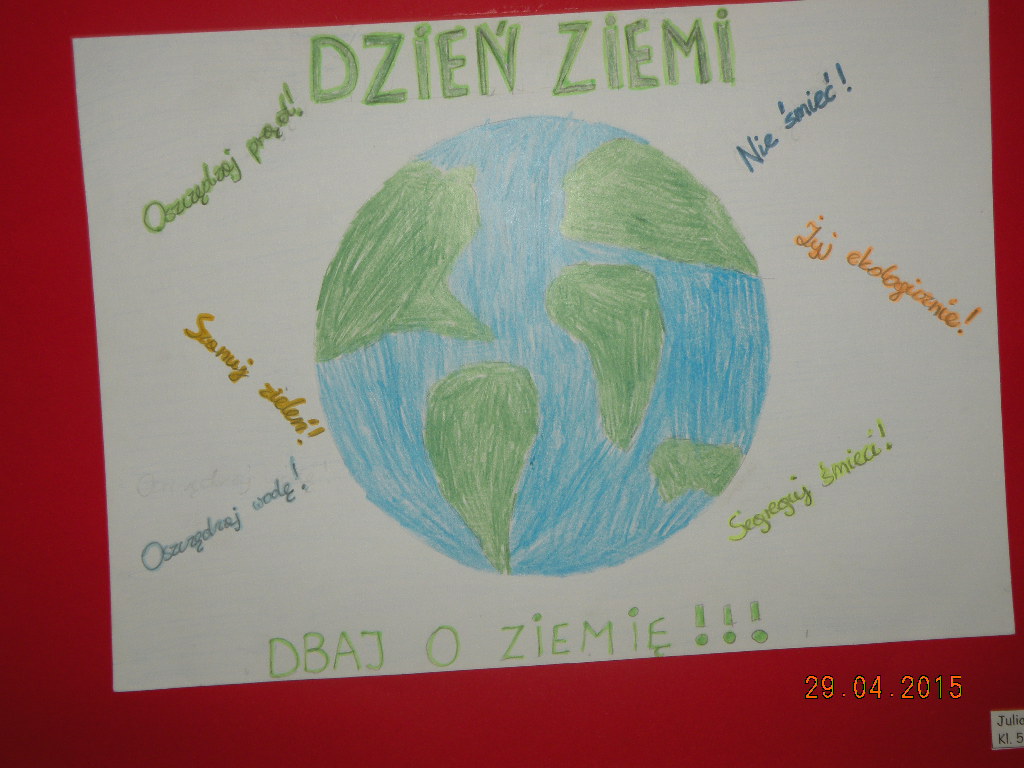 DZIEŃ ZIEMI
Oszczędzaj prąd!
Nie śmieć!
Żyj ekologicznie!
Szanuj zieleń!
Oszczędzaj wodę!
Segreguj śmieci!
DBAJ O ZIEMIĘ!!!
29.04.2015
Kl. 5